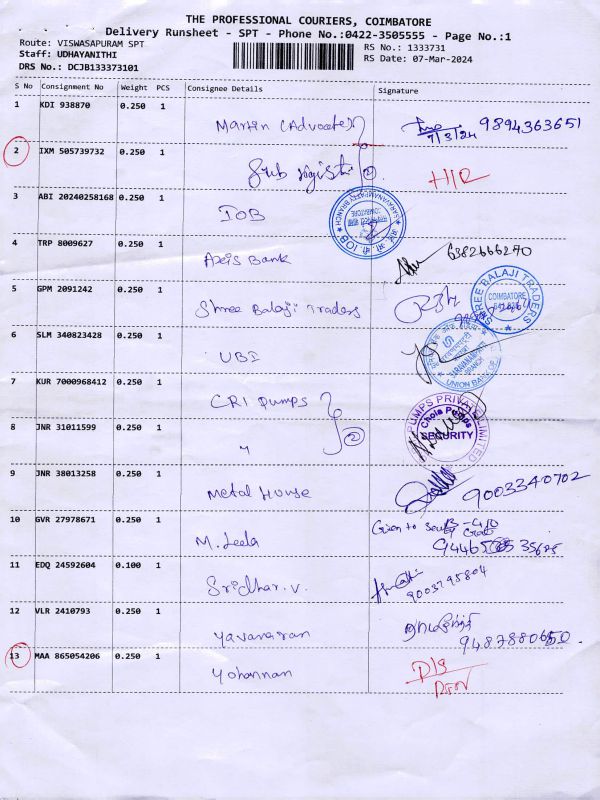 THE PROFESSIONAL COURIERS, COIMBATORE
Delivery Runsheet - SPT - Phone No.:0422-3505555 - Page No.:1
Route: VISWASAPURAM SPT
RS No.: 1333731
Staff: UDHAYANITHI
RS Date: 07-Mar-2024
DRS No.: DCJB133373101
S No Consignment No Weight PCS Consignee Details Signature
1 KDI 938870 0.250 1 Martin (Advocate) 7/3/24 9894363651
2 IXM 505739732 0.250 1 Sub 2
3 ABI 20240258168 0.250 1 IOB
SARAVANAMPATTY BRANCH COIMBATORE IOB
4 TRP 8009627 0.250 1 Axis Bank 6382666270
5 GPM 2091242 0.250 1 Shree Balaji Traders
SHREE BALAJI TRADERS COIMBATORE
6 SLM 340823428 0.250 1 UBI
SARAVANAMPATTI BRANCH UNION BANK OF
7 KUR 7000968412 0.250 1 CRI Pumps
PUMPS PRIVATE LIMITED SECURITY
8 JNR 31011599 0.250 1 " 2
9 JNR 38013258 0.250 1 Metal House 9003340702
10 GVR 27978671 0.250 1 M. Leela Given to
11 EDQ 24592604 0.100 1 Sridhar. V. 9003795804
12 VLR 2410793 0.250 1
13 MAA 865054206 0.250 1 Yohannan D/S